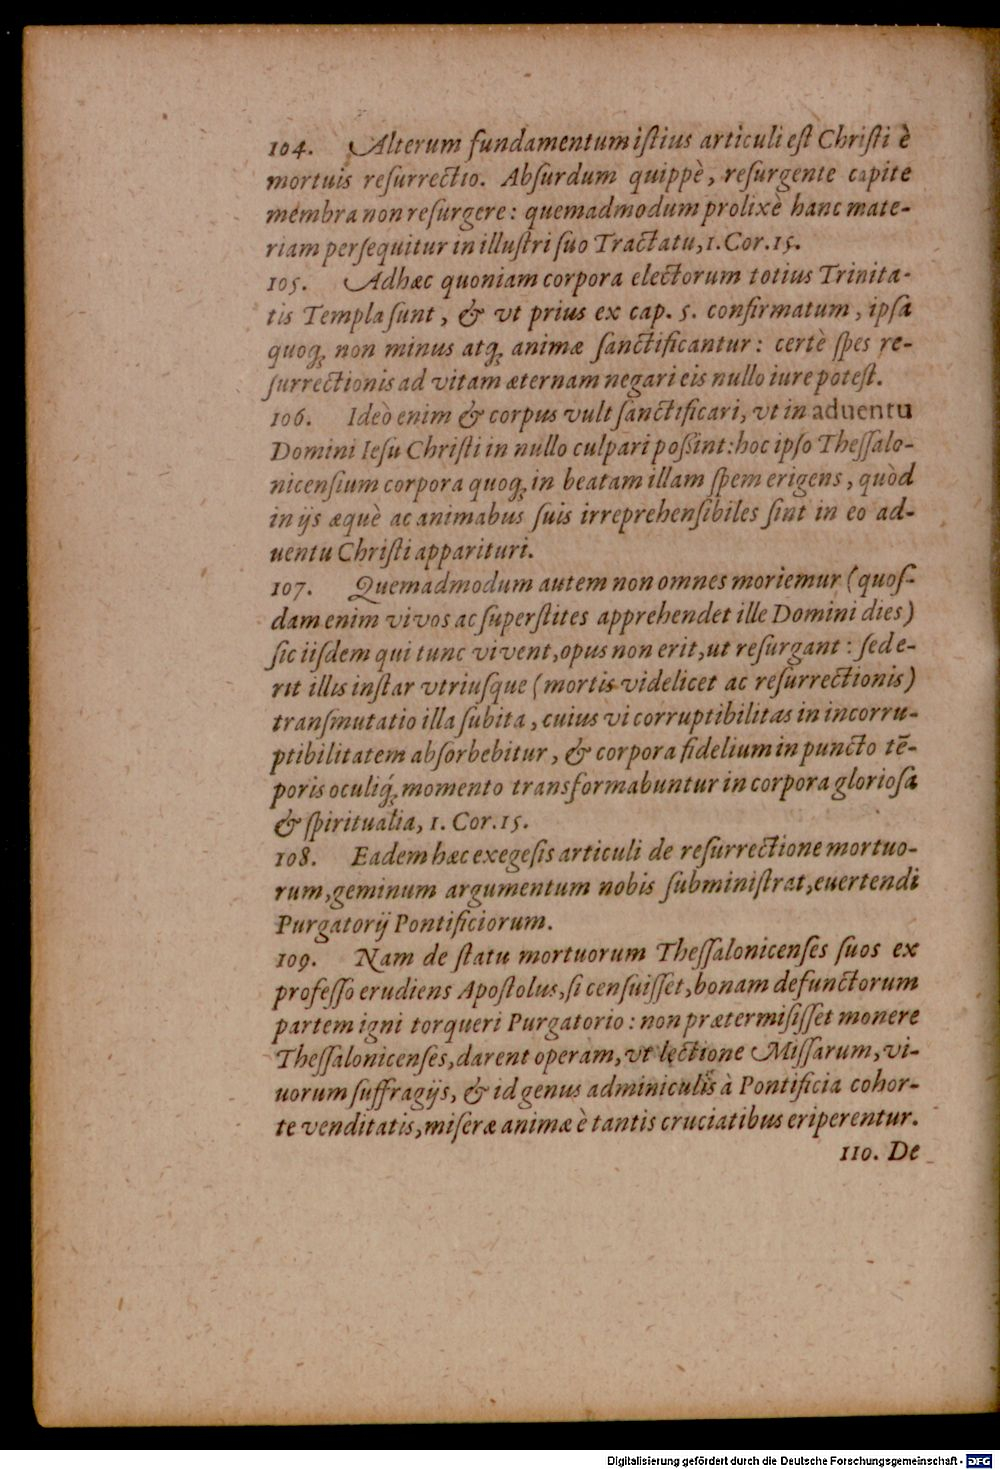 104. Alterum fundamentum iſtius articuli eſt Chriſti è
mortuis reſurrectio. Abſurdum quippè, reſurgente capite
membra non reſurgere: quemadmodum prolixè hanc mate-
riam perſequitur in illuſtri ſuo Tractatu, 1. Cor. 15.
105. Adhæc quoniam corpora electorum totius Trinita-
tis Templa ſunt, & vt prius ex cap. 5. confirmatum, ipſa
quoq; non minus atq; animæ ſanctificantur: certè ſpes re-
ſurrectionis ad vitam æternam negari eis nullo iure poteſt.
106. Ideò enim & corpus vult ſanctificari, vt in aduentu
Domini Ieſu Chriſti in nullo culpari poßint: hoc ipſo Theſſalo-
nicenſium corpora quoq; in beatam illam ſpem erigens, quòd
in ijs æquè ac animabus ſuis irreprehenſibiles ſint in eo ad-
uentu Chriſti apparituri.
107. Quemadmodum autem non omnes moriemur (quoſ-
dam enim vivos ac ſuperſtites apprehendet ille Domini dies)
ſic iiſdem qui tunc vivent, opus non erit, ut reſurgant: ſed e-
rit illis inſtar vtriuſque (mortis videlicet ac reſurrectionis)
tranſmutatio illa ſubita, cuius vi corruptibilitas in incorru-
ptibilitatem abſorbebitur, & corpora fidelium in puncto tē-
poris oculiq́; momento transformabuntur in corpora glorioſa
& ſpiritualia, 1. Cor. 15.
108. Eadem hæc exegeſis articuli de reſurrectione mortuo-
rum, geminum argumentum nobis ſubminiſtrat, euertendi
Purgatorij Pontificiorum.
109. Nam de ſtatu mortuorum Theſſalonicenſes ſuos ex
profeſſo erudiens Apoſtolus, ſi cenſuiſſet, bonam defunctorum
partem igni torqueri Purgatorio: non prætermiſiſſet monere
Theſſalonicenſes, darent operam, vt lectione Miſſarum, vi-
uorum ſuffragijs, & id genus adminiculis à Pontificia cohor-
te venditatis, miſeræ animæ è tantis cruciatibus eriperentur.
110. De
Digitalisierung gefördert durch die Deutsche Forschungsgemeinschaft - DFG